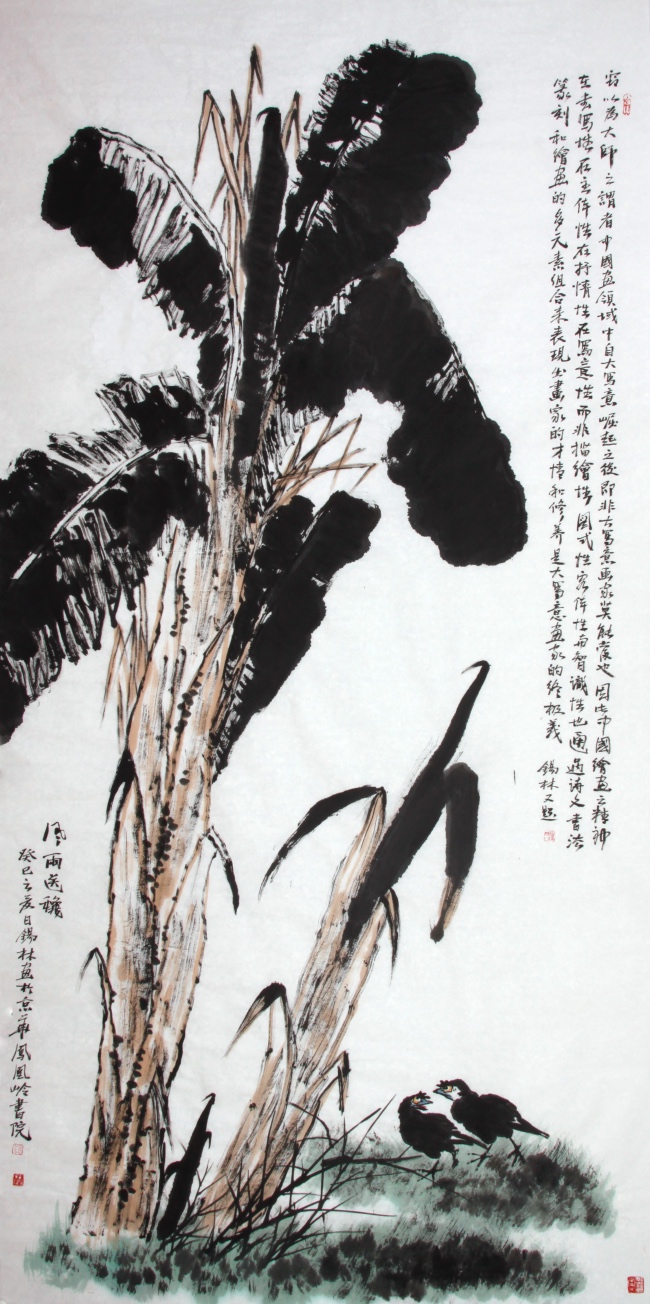 窃以為大師之謂者中國画領域中自大寫意崛起之後即非大寫意画家莫能當也因此中國繪画之精神
在于寫性在主体性在抒情性在寫意性而非描繪性图式性客体性与智識性也通過诗文書法
篆刻和繪画的多元素组合来表現出畫家的才情和修养是大寫意画家的终极義
錫林又題
風雨送
癸巳之夏日錫林画於京華鳳凰岭書院